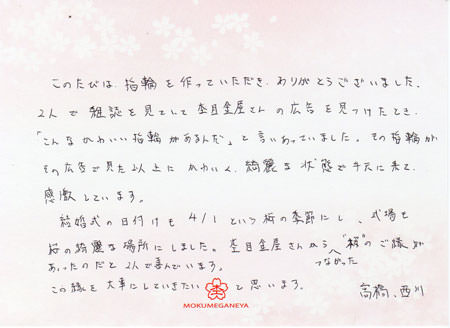 このたびは、指輪を作っていただき、ありがとうございました。
2人で雑誌を見ていて杢目金屋さんの広告を見つけたとき、
「こんなかわいい指輪があるんだ」と言いあっていました。その指輪が
その広告で見た以上にかわいく、綺麗な状態で手元に来て、
感激しています。
結婚式の日付けも4/1という桜の季節にし、式場も
桜の綺麗な場所にしました。杢目金屋さんから"桜"のご縁が
つながった
あったのだと2人で喜んでいます。
この縁を大事にしていきたいと思います。
高橋、西川
MOKUMEGANEYA